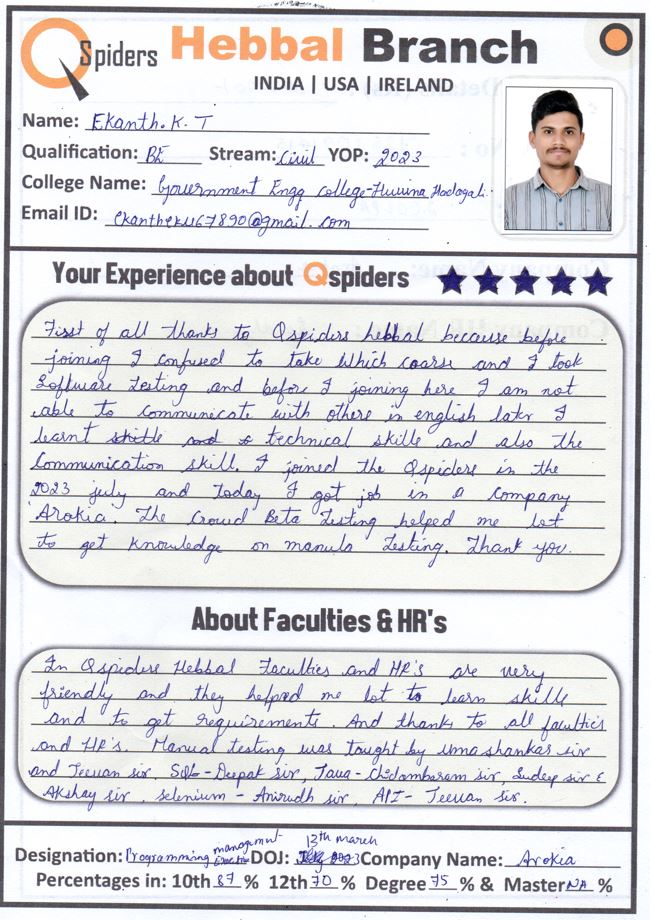 QSpiders Hebbal Branch
INDIA | USA | IRELAND
Name: Ekanth. K. T
Qualification: BE Stream: Civil YOP: 2023
College Name: Government Engg college-Huvina Hadagali.
Email ID: @gmail.com
Your Experience about Qspiders
First of all thanks to Qspiders hebbal because before
joining I confused to take which coarse and I took
Software Testing and before I joining here I am not
able to communicate with others in english later I
learnt technical skills and also the
Communication skill. I joined the Qspiders in the
2023 july and today I got job in a company
Arokia. The Crowd Beta Testing helped me lot
to get knowledge on Testing. Thank you.
About Faculties & HR's
In Qspiders Hebbal Faculties and HR's are very
friendly and they helped me lot to learn skills
and to get requirements. And thanks to all faculties
and HR's. Manual testing was taught by Uma shankar sir
and Jeevan sir. SQL-Deepak sir, Java-Chidambaram sir, Sudeep sir &
Akshay sir. Selenium - Anirudh sir, API- Jeevan Sir.
Designation: Programming management DOJ: 13th march Company Name: Arokia
Percentages in: 10th 87 % 12th 70 % Degree 75 % & Master NA %